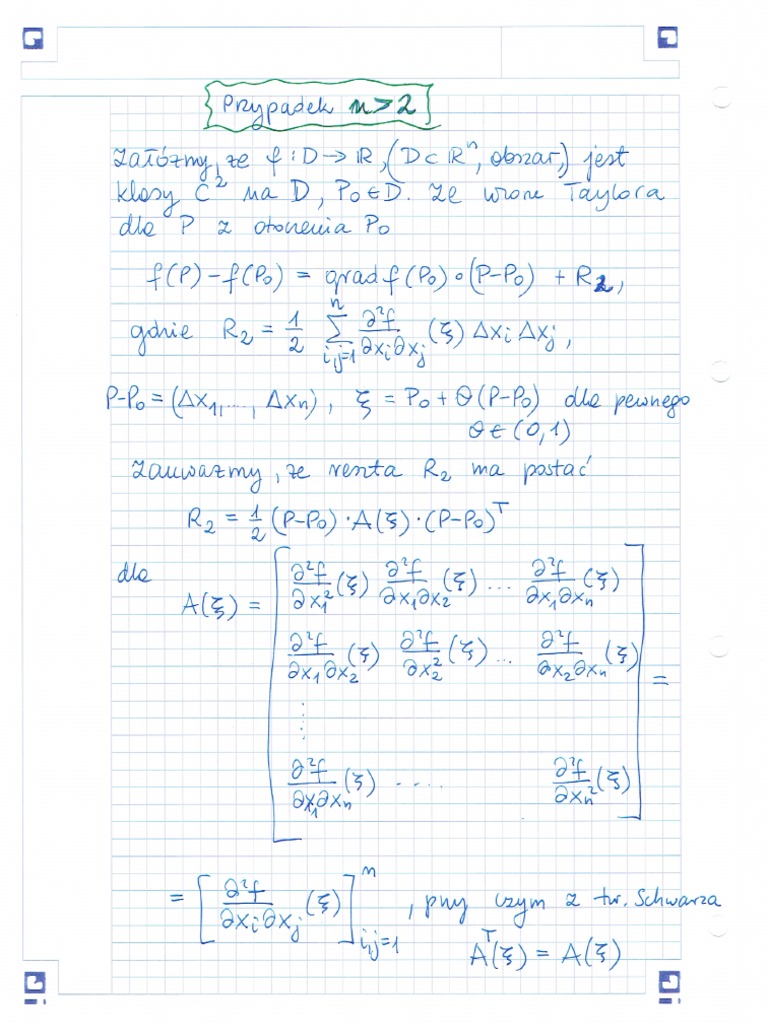 Przypadek n>2
Załóżmy, że f : D → ℝ, (D ⊂ ℝⁿ, obszar,) jest
klasy C² na D, P₀ ∈ D. Ze wzoru Taylora
dla P z otoczenia P₀
f(P) − f(P₀) = grad f(P₀) ∘ (P−P₀) + R₂,
gdzie R₂ = 1/2 ∑_{i,j=1}^{n} ∂²f/∂xᵢ∂xⱼ (ξ) Δxᵢ Δxⱼ,
P−P₀ = (Δx₁, ..., Δxₙ), ξ = P₀ + θ(P−P₀) dla pewnego
θ ∈ (0,1)
Zauważmy, że reszta R₂ ma postać
R₂ = 1/2 (P−P₀) · A(ξ) · (P−P₀)ᵀ
dla A(ξ) = [ ∂²f/∂x₁² (ξ) ∂²f/∂x₁∂x₂ (ξ) ... ∂²f/∂x₁∂xₙ (ξ)
∂²f/∂x₁∂x₂ (ξ) ∂²f/∂x₂² (ξ) ... ∂²f/∂x₂∂xₙ (ξ)
⋮
∂²f/∂x₁∂xₙ (ξ) .... ∂²f/∂xₙ² (ξ) ] =
= [ ∂²f/∂xᵢ∂xⱼ (ξ) ]_{i,j=1}^{n}, przy czym z tw. Schwarza
Aᵀ(ξ) = A(ξ)